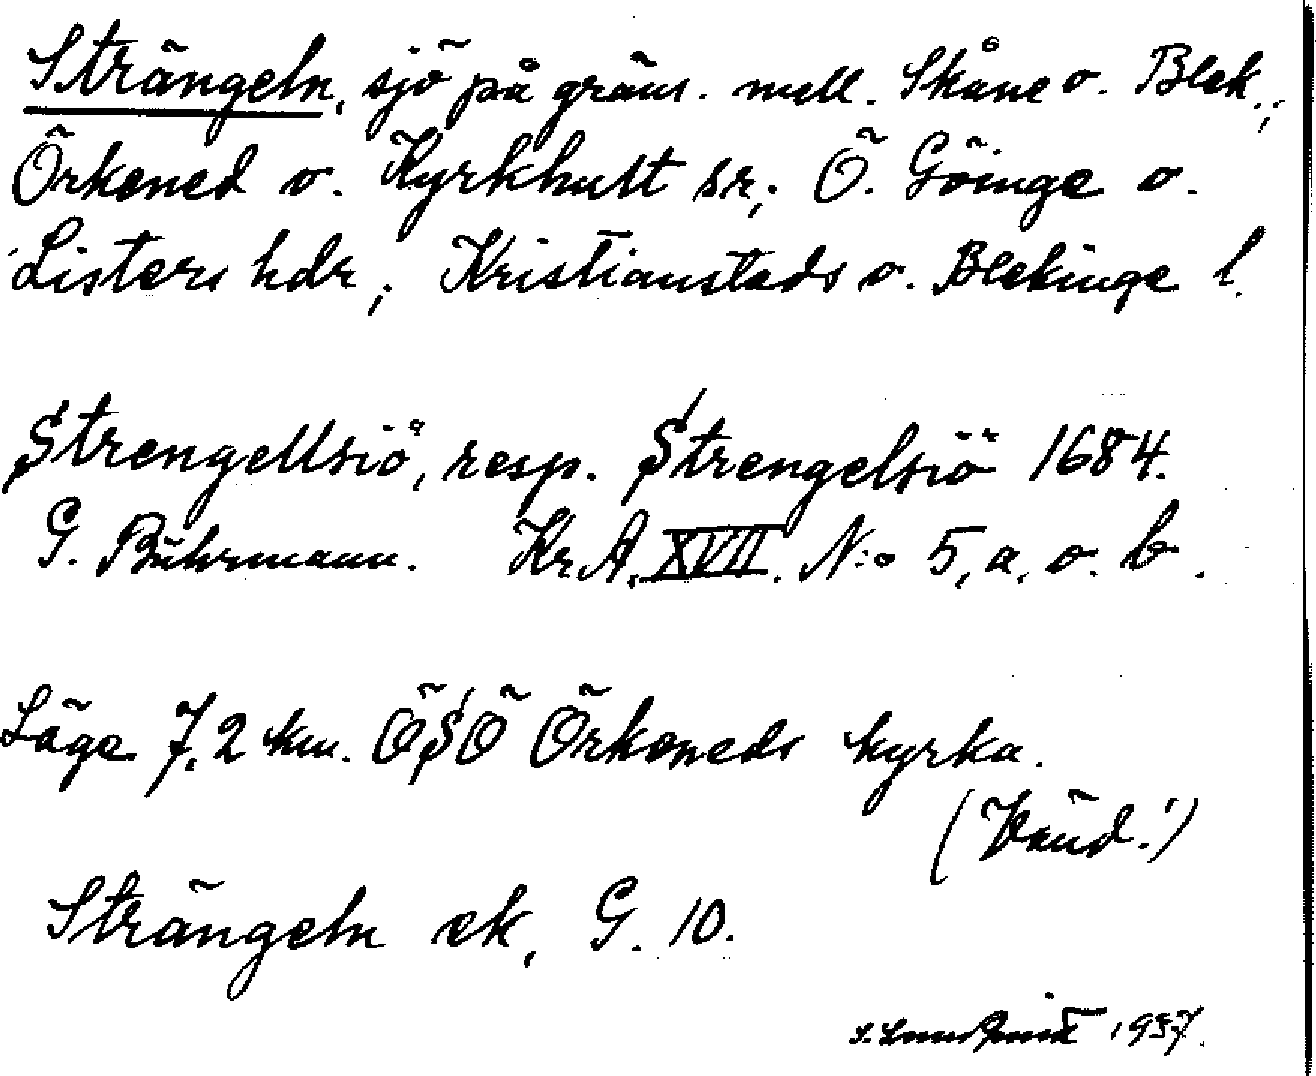 Strängeln, sjö på gräns. mell. Skåne o. Blek.;
Örkened o. Kyrkhult sr; Ö. Göinge o.
Listers hdr; Kristianstads o. Blekinge l.
Strengellsiö, resp. Strengelsiö 1684.
G. Buhrmann. Kr. A. XVII. N:o 5, a. o. b.
Läge 7,2 km. ÖSÖ Örkeneds kyrka.
(Vänd.!)
Strängeln ek, G. 10.
1937.